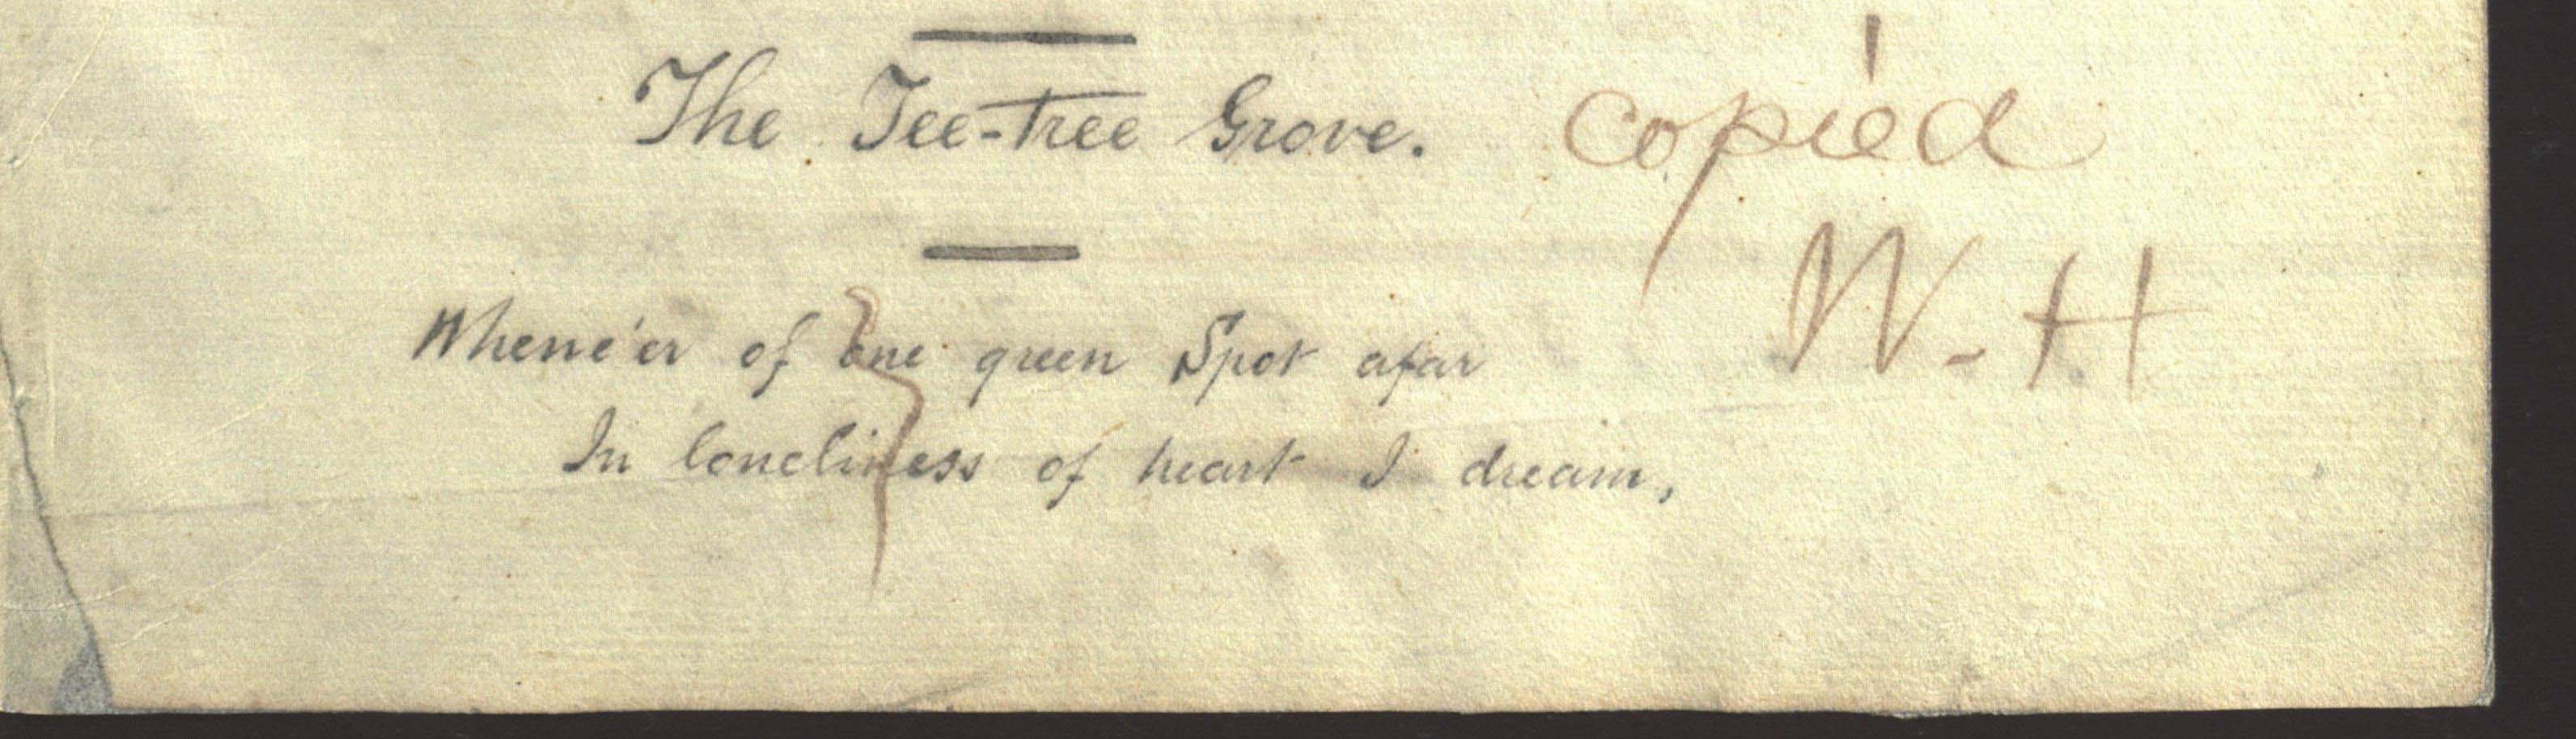 The Tee-tree Grove. copied
W-H
Whene'er of one green Spot afar
In loneliness of heart I dream,